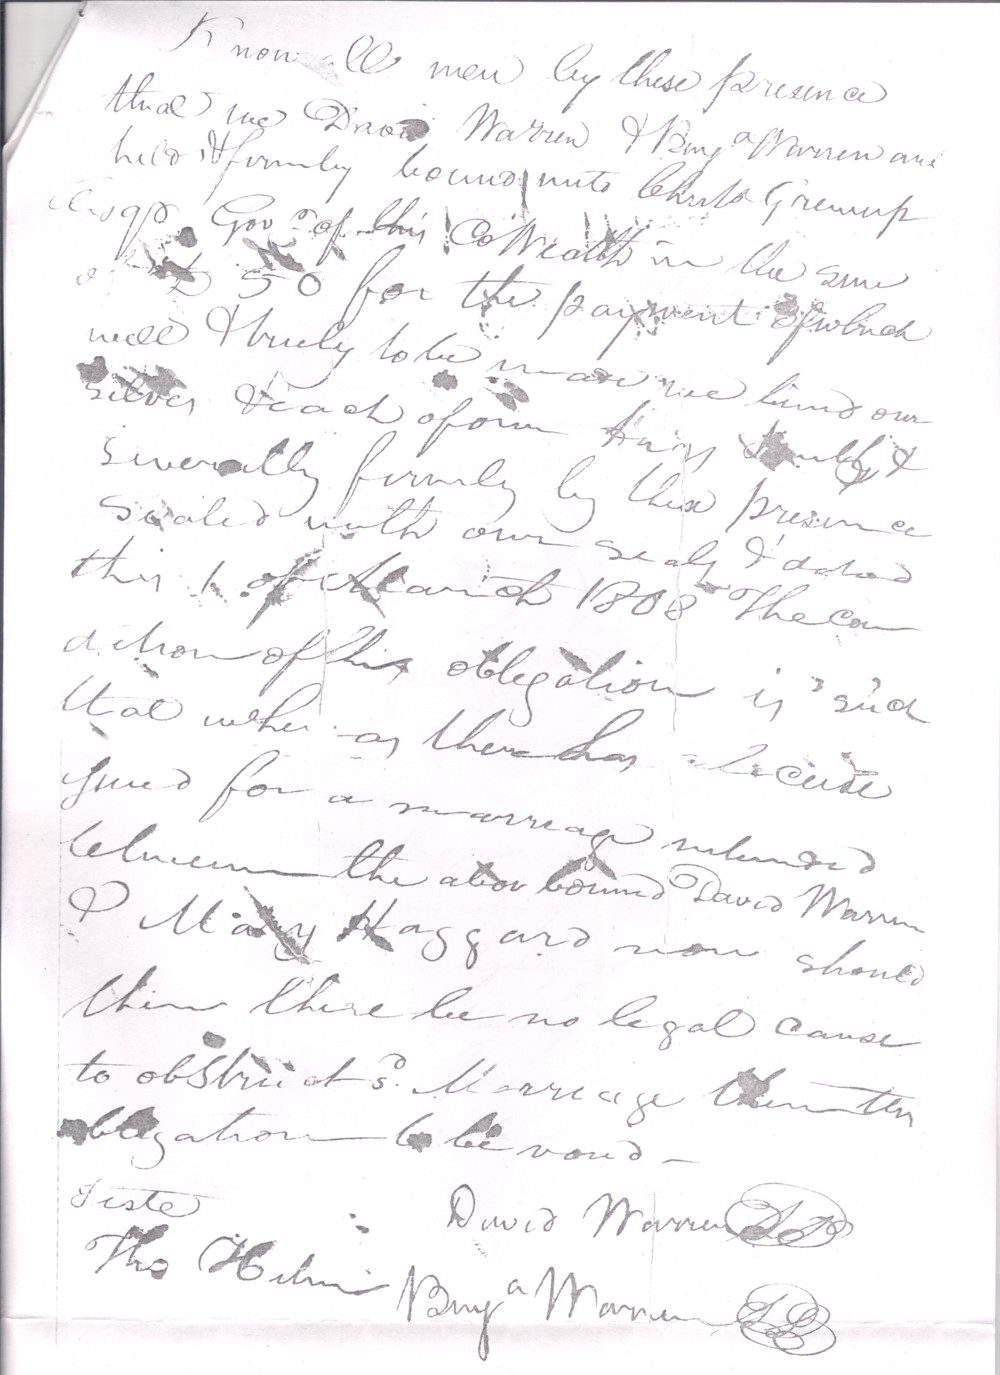 Know all men by these presence
that we David Warren & Benj.a Warren are
held & firmly bound unto Christo Greenup
Esqr. Govr. of this CoWealth in the sum
of £ 50 for the payment of which
well & truely to be made we bind our
selves & each of our heirs &
severally firmly by these presence
Sealed with our seals & dated
this 1 of March 1808 The con
dition of this obligation is such
that where as there has a Licence
issued for a marriage intended
between the above bound David Warren
& Mary Haggard now should
their there be no legal cause
to obstruct sd. Marriage then this
obligation to be void –
Teste David Warren
Tho Helm Benj.a Warren